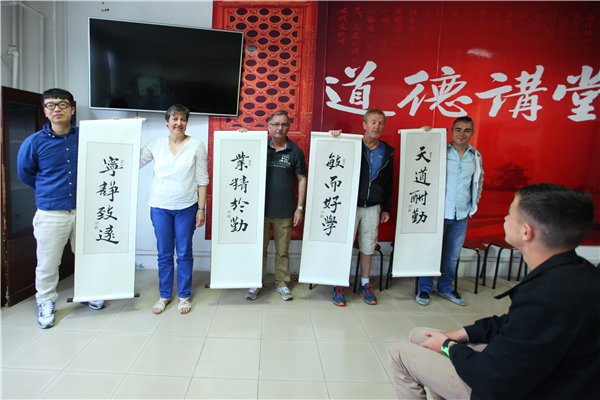 道德讲堂
寧靜致遠
業精於勤
敏而好學
天道酬勤